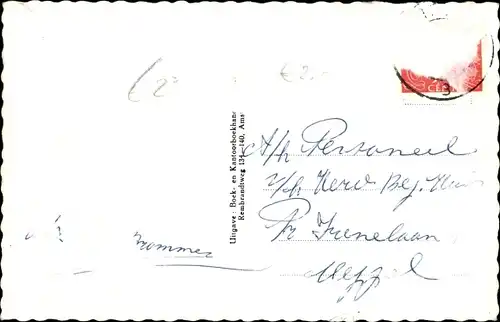 €2,-
Uitgave: Boek- en Kantoorboekhan
Rembrandtweg 134-140, Ams
a/h Personeel
v/h Herv Bej. Huis
Pr Irenelaan
Meppel